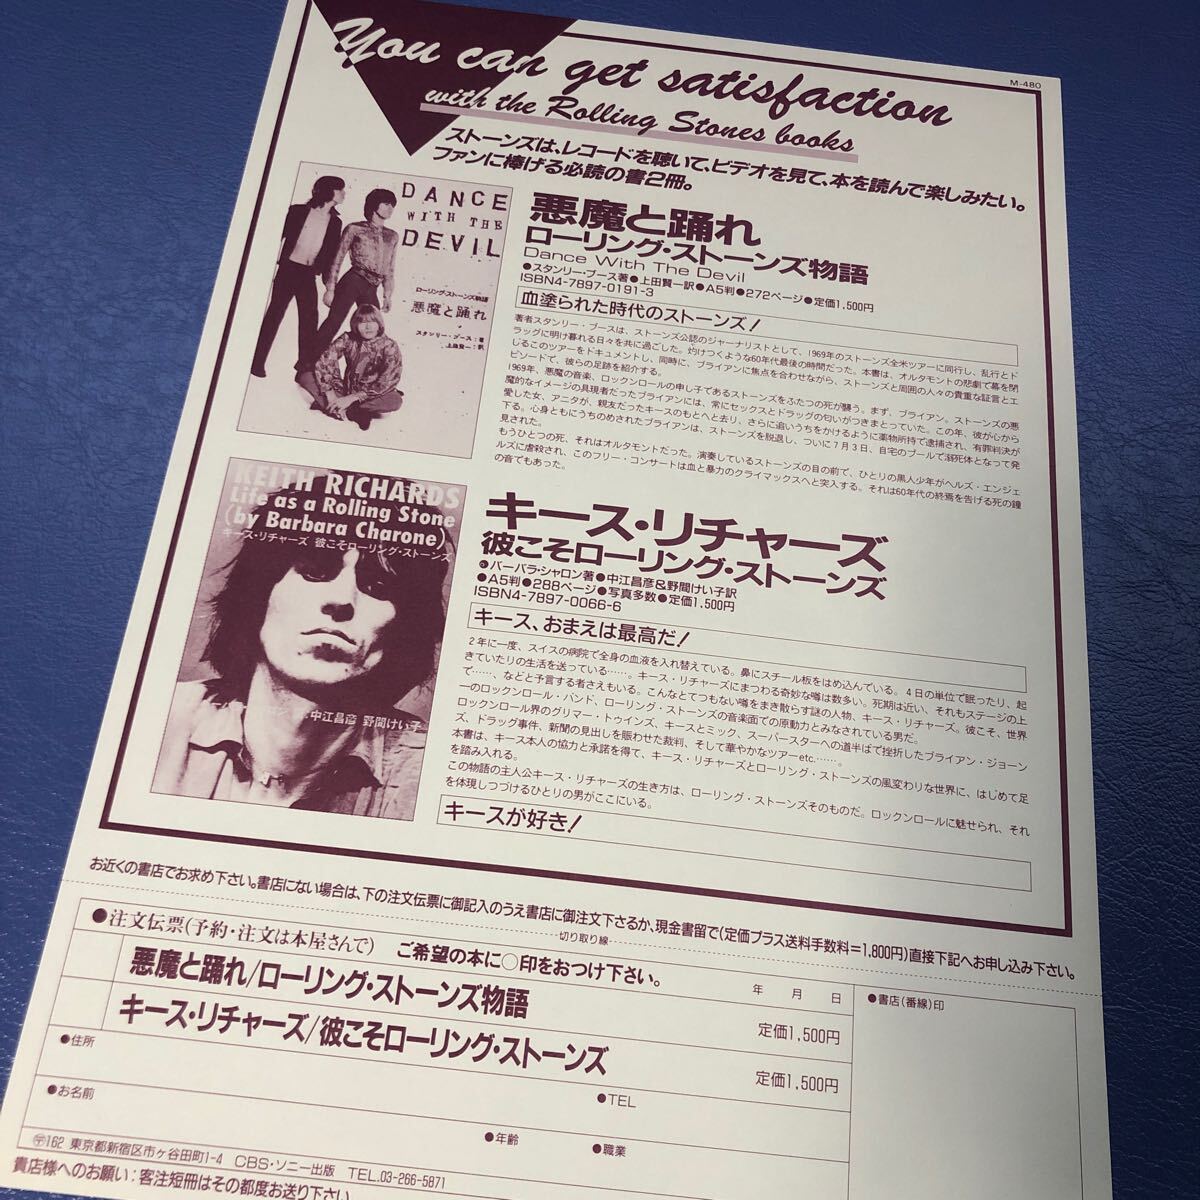 M-480
You can get satisfaction
with the Rolling Stones books
ストーンズは、レコードを聴いて、ビデオを見て、本を読んで楽しみたい。
ファンに捧げる必読の書2冊。
DANCE
WITH THE
DEVIL
ローリング・ストーンズ物語
悪魔と踊れ
スタンリー・ブース:著
上田賢一:訳
悪魔と踊れ
ローリング・ストーンズ物語
Dance With The Devil
●スタンリー・ブース著●上田賢一訳●A5判●272ページ●定価1,500円
ISBN4-7897-0191-3
血塗られた時代のストーンズ!
著者スタンリー・ブースは、ストーンズ公認のジャーナリストとして、1969年のストーンズ全米ツアーに同行し、乱行とド
ラッグに明け暮れる日々を共に過ごした。灼けつくような60年代最後の時間だった。本書は、オルタモントの悲劇で幕を閉
じるこのツアーをドキュメントし、同時に、ブライアンに焦点を合わせながら、ストーンズと周囲の人々の貴重な証言とエ
ピソードで、彼らの足跡を紹介する。
1969年、悪魔の音楽、ロックンロールの申し子であるストーンズをふたつの死が襲う。まず、ブライアン。ストーンズの悪
魔的なイメージの具現者だったブライアンには、常にセックスとドラッグの匂いがつきまとっていた。この年、彼が心から
愛した女、アニタが、親友だったキースのもとへと去り、さらに追いうちをかけるように薬物所持で逮捕され、有罪判決が
下る。心身ともにうちのめされたブライアンは、ストーンズを脱退し、ついに7月3日、自宅のプールで溺死体となって発
見された。
もうひとつの死、それはオルタモントだった。演奏しているストーンズの目の前で、ひとりの黒人少年がヘルズ・エンジェ
ルズに虐殺され、このフリー・コンサートは血と暴力のクライマックスへと突入する。それは60年代の終焉を告げる死の鐘
の音でもあった。
KEITH RICHARDS
Life as a Rolling Stone
(by Barbara Charone)
キース・リチャーズ 彼こそローリング・ストーンズ
中江昌彦 野間けい子
キース・リチャーズ
彼こそローリング・ストーンズ
●バーバラ・シャロン著●中江昌彦&野間けい子訳
●A5判●288ページ●写真多数●定価1,500円
ISBN4-7897-0066-6
キース、おまえは最高だ!
2年に一度、スイスの病院で全身の血液を入れ替えている。鼻にスチール板をはめ込んでいる。4日の単位で眠ったり、起
きていたりの生活を送っている……。キース・リチャーズにまつわる奇妙な噂は数多い。死期は近い、それもステージの上
で……、などと予言する者さえもいる。こんなとてつもない噂をまき散らす謎の人物、キース・リチャーズ。彼こそ、世界
一のロックンロール・バンド、ローリング・ストーンズの音楽面での原動力とみなされている男だ。
ロックンロール界のグリマー・トゥインズ、キースとミック、スーパースターへの道半ばで挫折したブライアン・ジョーン
ズ、ドラッグ事件、新聞の見出しを賑わせた裁判、そして華やかなツアーetc.……。
本書は、キース本人の協力と承諾を得て、キース・リチャーズとローリング・ストーンズの風変わりな世界に、はじめて足
を踏み入れる。
この物語の主人公キース・リチャーズの生き方は、ローリング・ストーンズそのものだ。ロックンロールに魅せられ、それ
を体現しつづけるひとりの男がここにいる。
キースが好き!
お近くの書店でお求め下さい。書店にない場合は、下の注文伝票に御記入のうえ書店に御注文下さるか、現金書留で(定価プラス送料手数料=1,800円)直接下記へお申し込み下さい。
切り取り線
●注文伝票(予約・注文は本屋さんで) ご希望の本に○印をおつけ下さい。
年 月 日
●書店(番線)印
悪魔と踊れ/ローリング・ストーンズ物語
定価1,500円
キース・リチャーズ/彼こそローリング・ストーンズ
定価1,500円
●住所
●お名前
●TEL
●年齢
●職業
〒162 東京都新宿区市ヶ谷田町1-4 CBS・ソニー出版 TEL.03-266-5871
貴店様へのお願い:客注短冊はその都度お送り下さい。